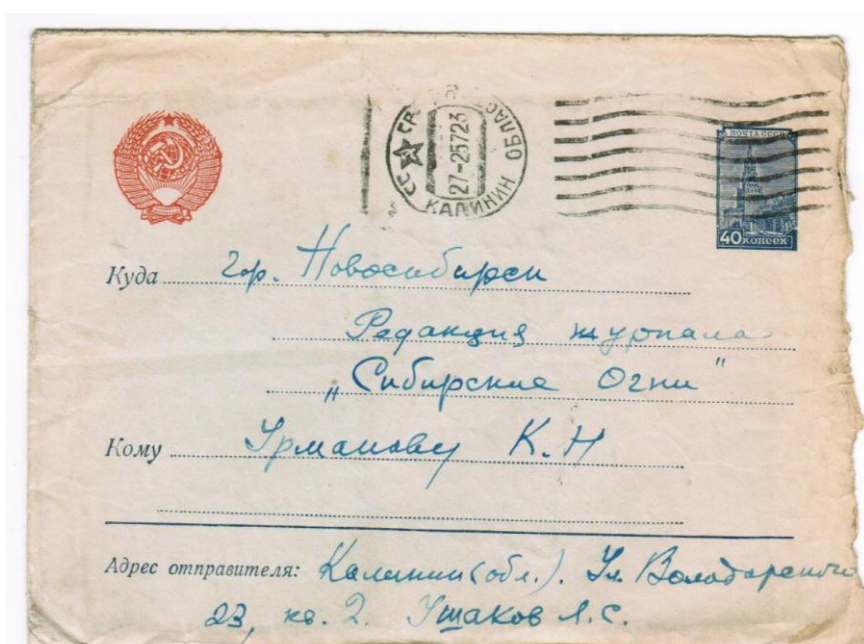 СССР
27-25723
КАЛИНИН ОБЛАС
ПОЧТА СССР
40 КОПЕЕК
Куда гор. Новосибирск
Редакция журнала
„Сибирские Огни"
Кому Урманову К. Н
Адрес отправителя: Калинин (обл.). Ул. Володарского
23, кв. 2. Ушаков А. С.